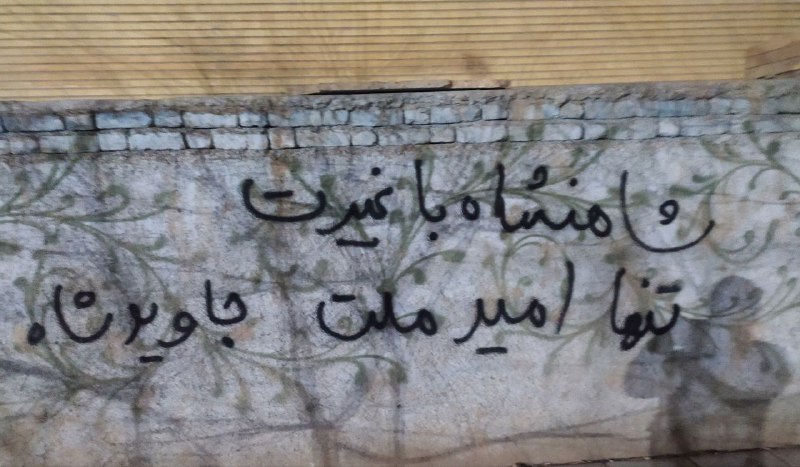 شاهنشاه با غیرت
تنها امید ملت جاوید شاه